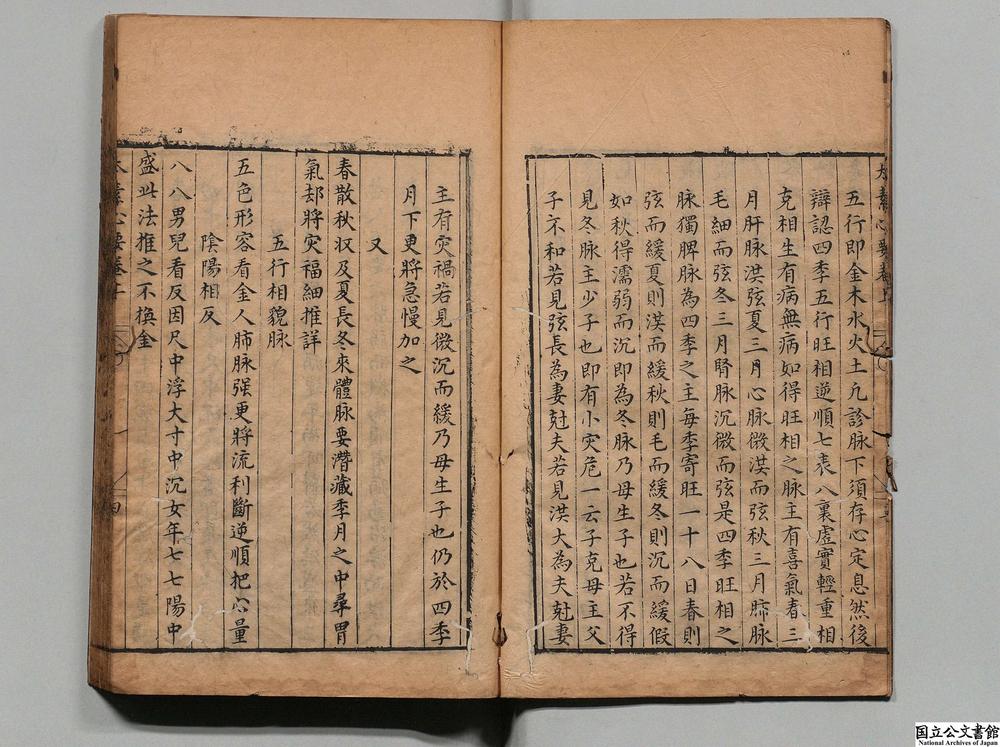 太素心要卷上
五行即金木水火土凡診脉下須存心定息然後
辯認四季五行旺相逆順七表八裏虛實輕重相
克相生有病無病如得旺相之脉主有喜氣春三
月肝脉洪弦夏三月心脉微洪而弦秋三月肺脉
毛細而弦冬三月腎脉沉微而弦是四季旺相之
脉獨脾脉為四季之主每季寄旺一十八日春則
弦而緩夏則洪而緩秋則毛而緩冬則沉而緩假
如秋得濡弱而沉即為冬脉乃母生子也若不得
見冬脉主少子也即有小灾危一云子克母主父
子不和若見弦長為妻尅夫若見洪大為夫尅妻
主有灾禍若見微沉而緩乃母生子也仍於四季
月下更將急慢加之
又
春散秋収及夏長冬來體脉要潛藏季月之中尋胃
氣却將灾福細推詳
五行相貌脉
五色形容看金人肺脉强更將流利斷逆順把心量
陰陽相反
八八男兒看反因尺中浮大寸中沉女年七七陽中
盛此法推之不換金
太素心要卷上
四
国立公文書館
National Archives of Japan